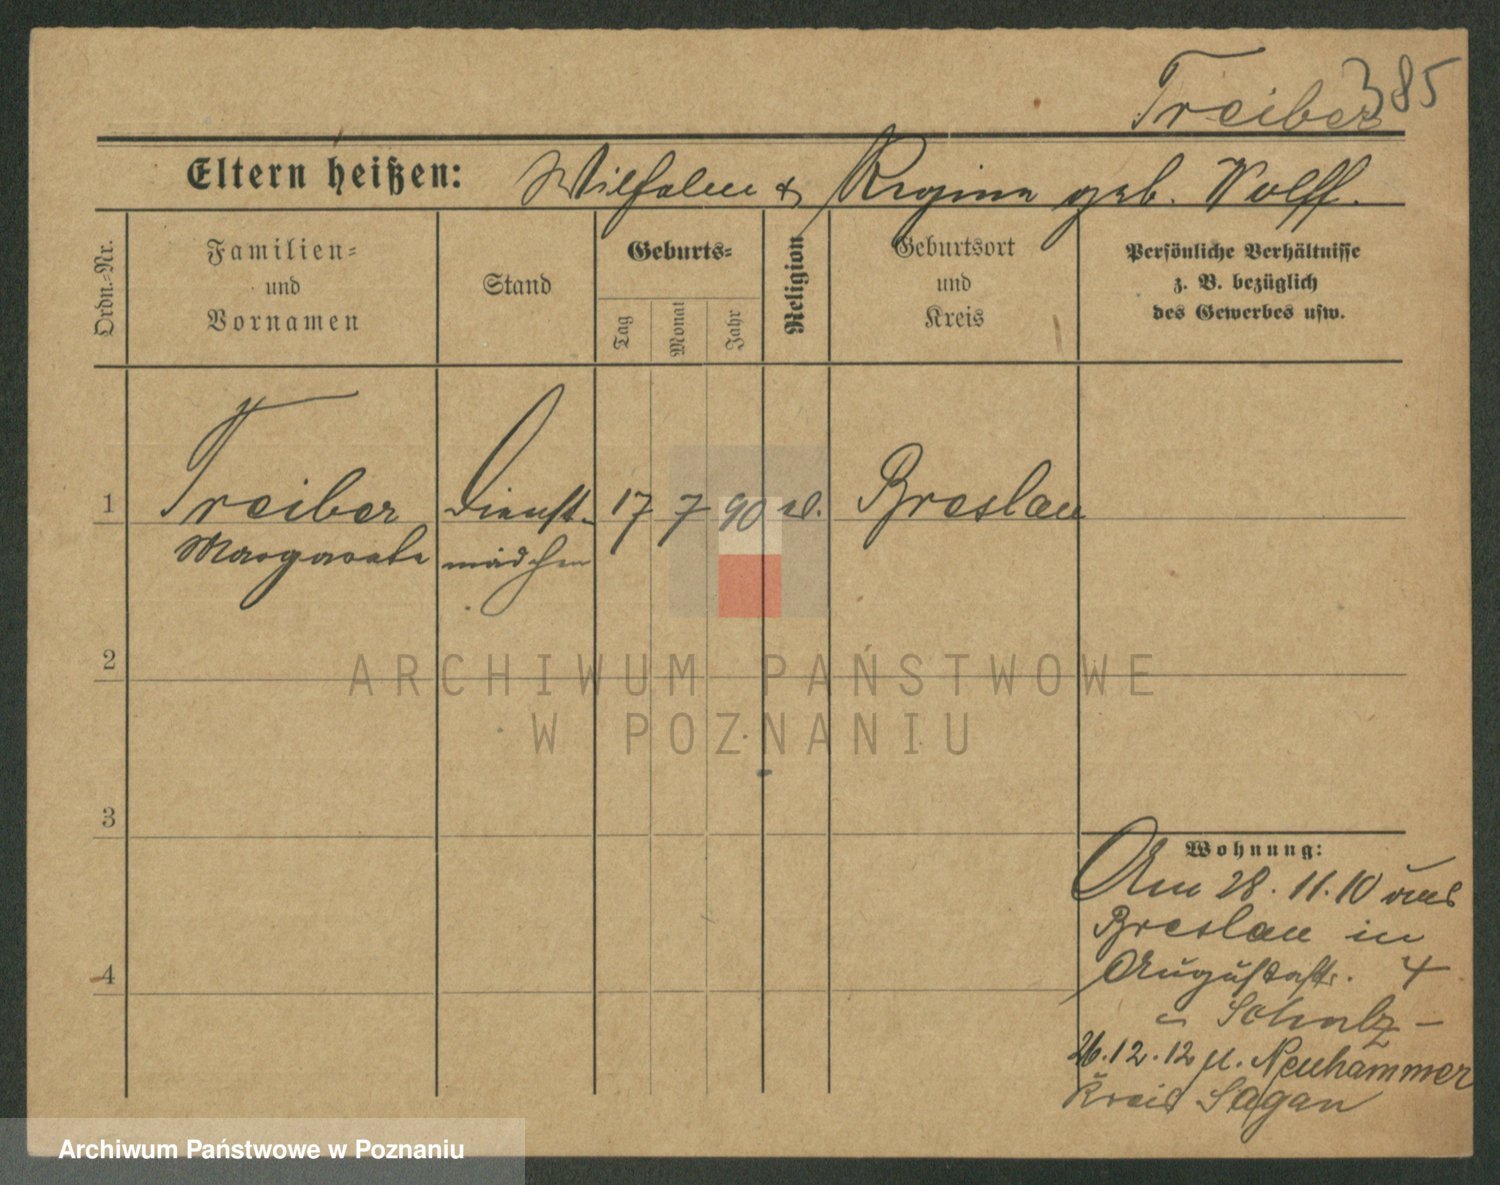 385
Treiber
Eltern heißen: Wilhelm & Regina geb. Wolff.
Ordn.-Nr.
Familien-
und
Vornamen
Stand
Geburts-
Tag
Monat
Jahr
Religion
Geburtsort
und
Kreis
Persönliche Verhältnisse
z. B. bezüglich
des Gewerbes usw.
1 Treiber Dienst- 17 7 90 Breslau
Margareta mädchen
2
ARCHIWUM PAŃSTWOWE
W POZNANIU
3
Wohnung:
Am 28.11.10 aus
Breslau in
4
Augustastr. 4
Scholz -
26.12.12 n. Neuhammer
Kreis Sagan
Archiwum Państwowe w Poznaniu